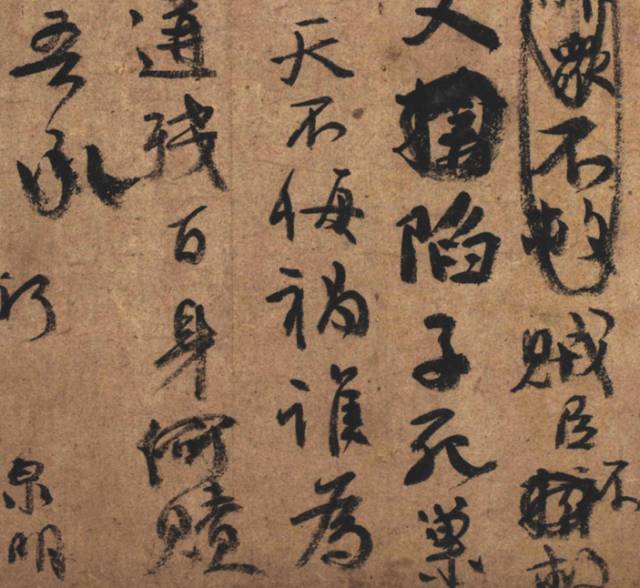 不賊臣不救
父陷子死巢
天不悔禍誰為
遘殘百身何贖
吾承
泉明